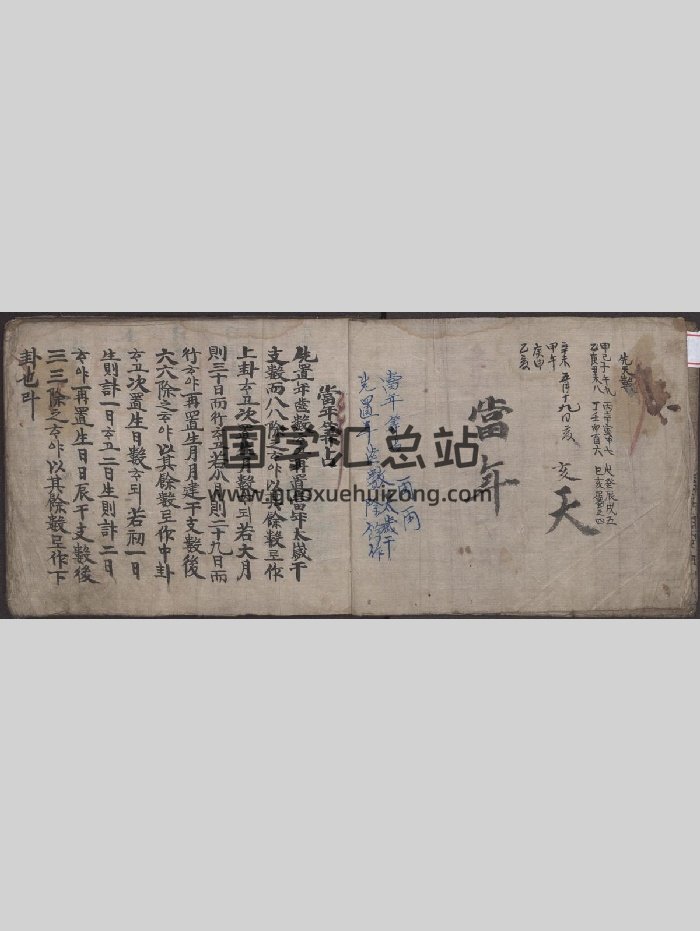 先天數
甲己子午九 丙辛寅申七 戊癸辰戌五
乙庚丑未八 丁壬卯酉六 巳亥屬之四
辛未五月十九日亥
甲午
庚申
乙亥
天
當年
當年
太歲干
先置年齒數
當年 占
先置年齒數 再置當年太歲干
支數而八八除之ᄒᆞ야以其餘數로作
上卦ᄒᆞ고次置生月數ᄒᆞ되若大月
則三十日而行ᄒᆞ고若小月則二十九日而
行ᄒᆞ야再置生月月建干支數後
六六除之ᄒᆞ야以其餘數로作中卦
ᄒᆞ고次置生日數ᄒᆞ되若初一日
生則計一日ᄒᆞ고二日生則計二日
ᄒᆞ야再置生日日辰干支數後
三三除之ᄒᆞ야以其餘數로作下
卦也라
国学汇总站
www.guoxuehuizong.com